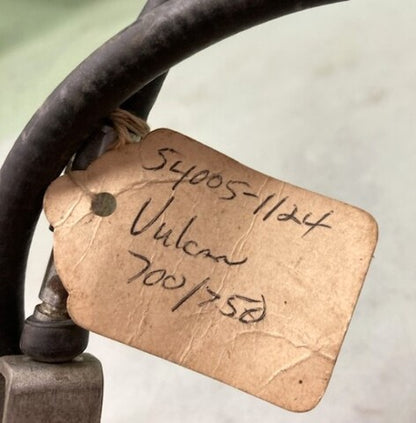 54005-1124
Vulcan
700/750